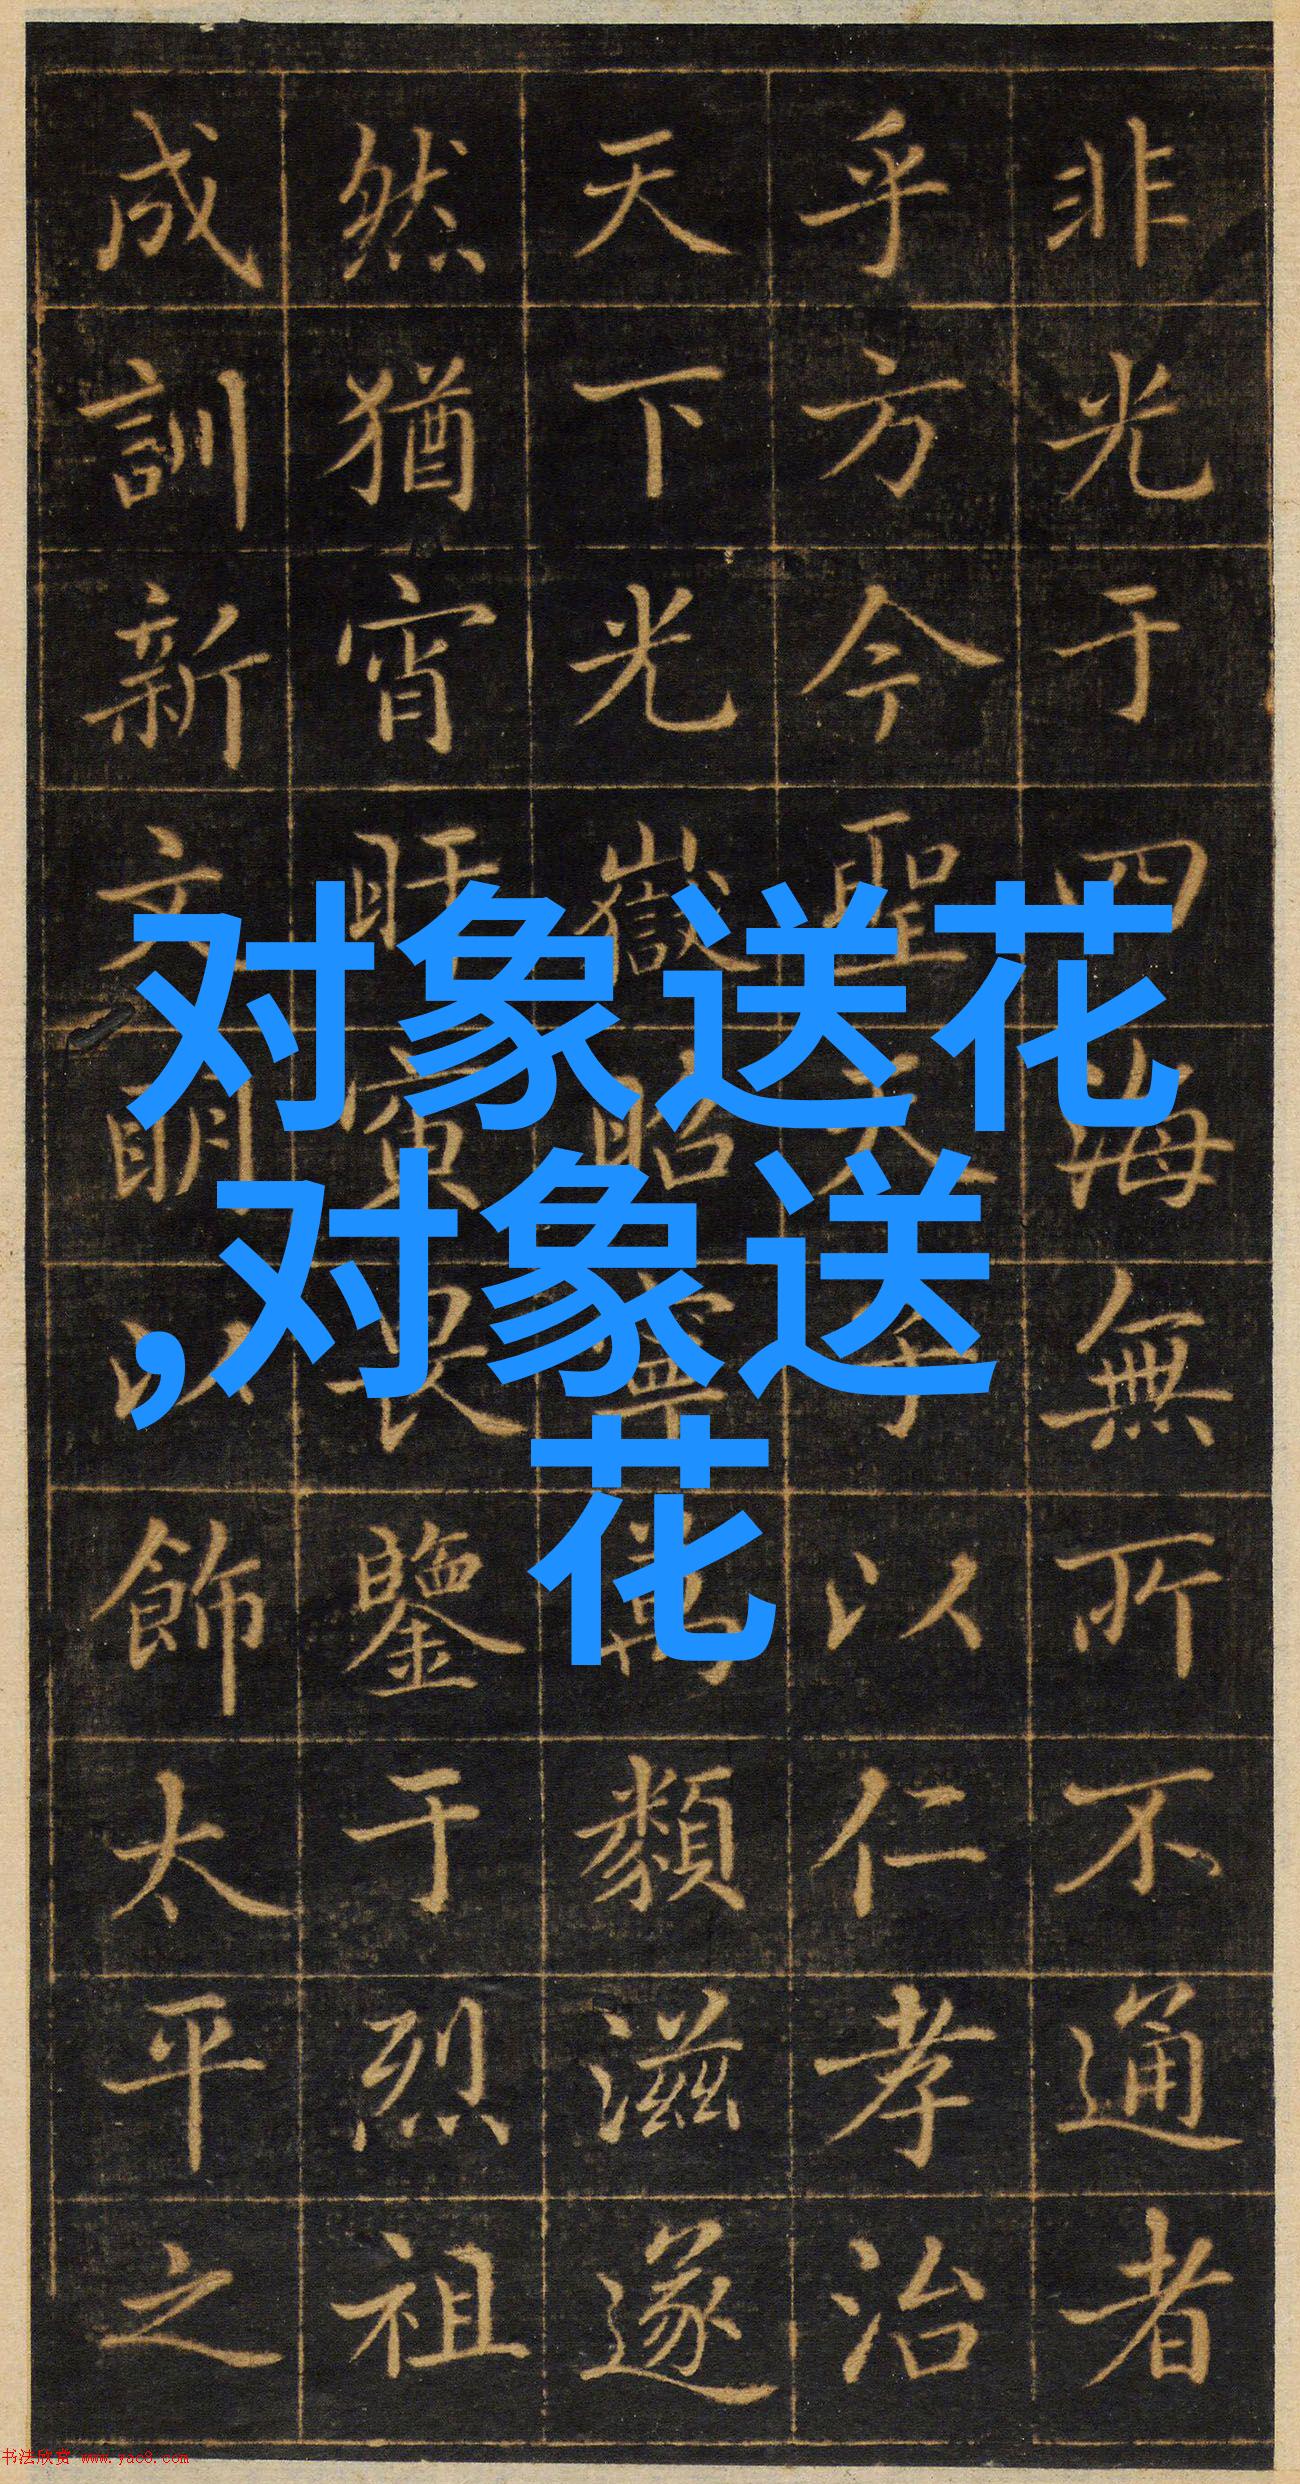 非光于四海無所不通者
乎方今聖天子以仁孝治
天下光嶽昭寧萬類滋遂
然猶宵旰寅畏鑒于烈祖
成訓新文明以飾太平之
对象送花
,对象送
花
书法欣赏 www.yac8.com